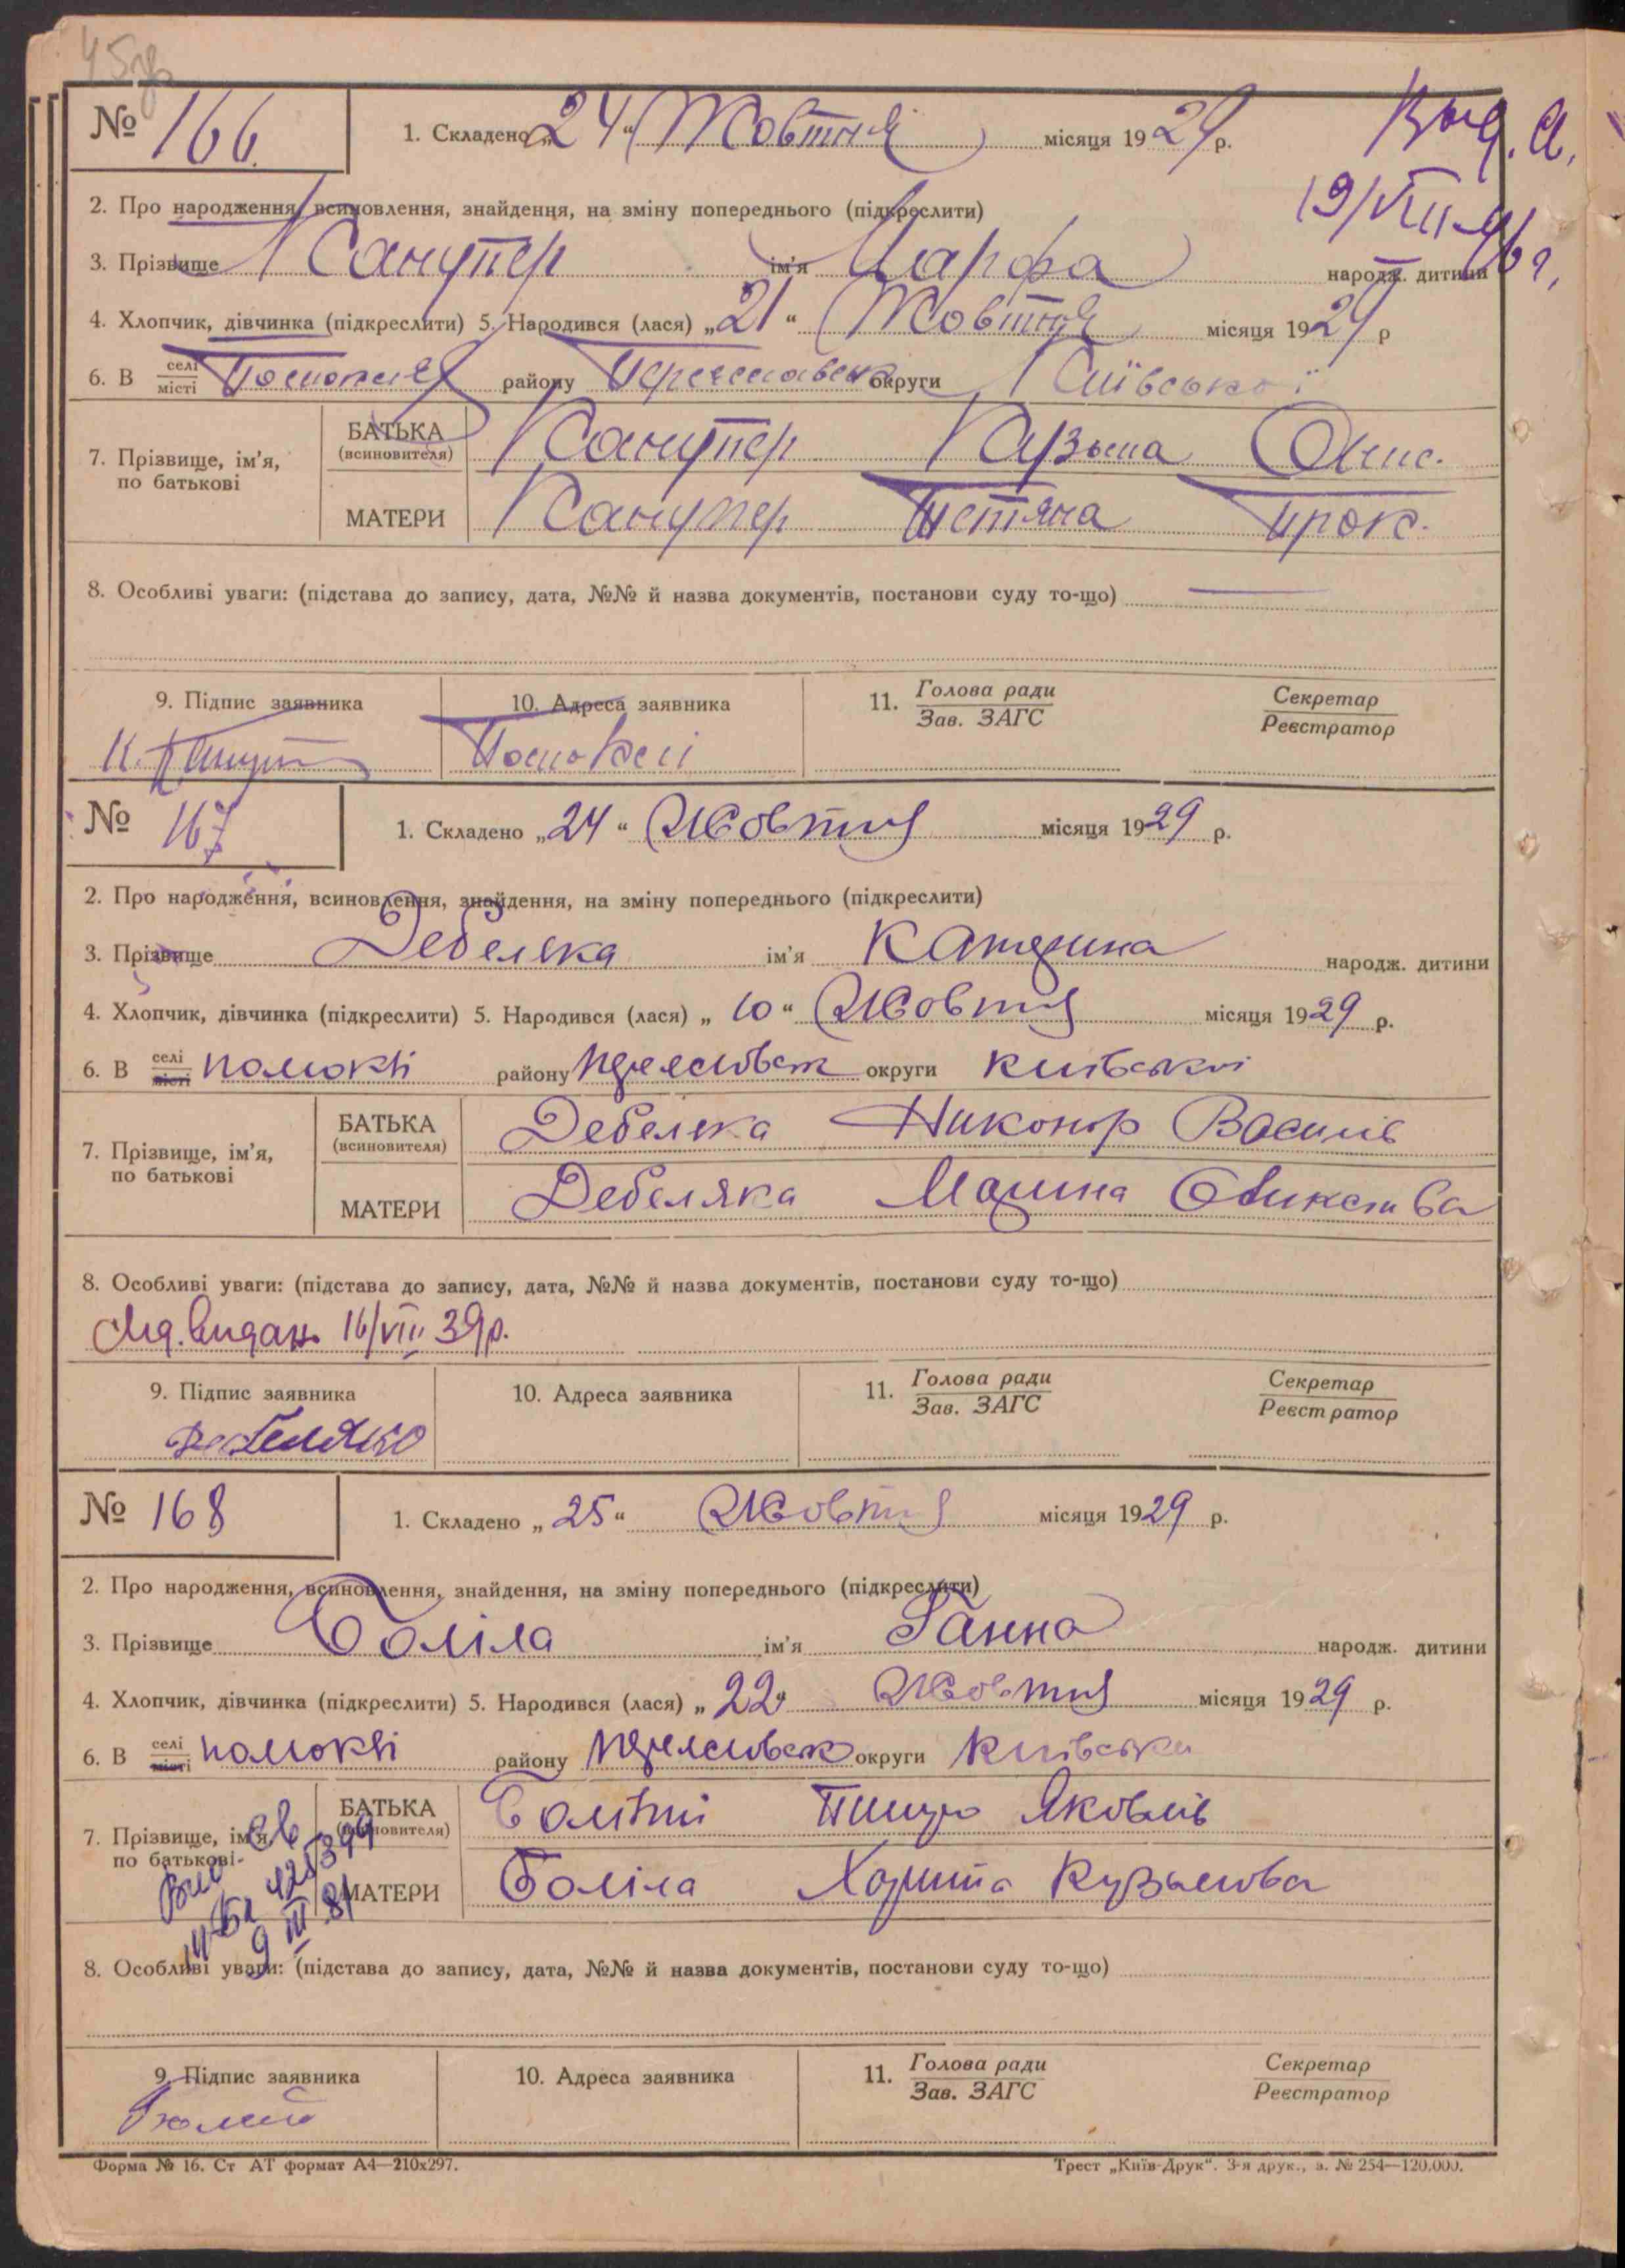 45зв
№ 166. 1. Складено „24“ Жовтня місяця 1929 р.
Выд. А.
19/VIII-46 г.
2. Про народження, всиновлення, знайдення, на зміну попереднього (підкреслити)
3. Прізвище Канупер ім'я Марфа народж. дитини
4. Хлопчик, дівчинка (підкреслити) 5. Народився (лася) „21“ Жовтня місяця 1929 р
6. В селі/місті району округи Київської
7. Прізвище, ім'я, по батькові
БАТЬКА (всиновителя) Канупер Кузьма
МАТЕРИ Канупер Тетяна Прок.
8. Особливі уваги: (підстава до запису, дата, №№ й назва документів, постанови суду то-що)
9. Підпис заявника 10. Адреса заявника 11. Голова ради/Зав. ЗАГС Секретар/Реєстратор
№ 167 1. Складено „24“ Жовтня місяця 1929 р.
2. Про народження, всиновлення, знайдення, на зміну попереднього (підкреслити)
3. Прізвище Дебеляка ім'я Катерина народж. дитини
4. Хлопчик, дівчинка (підкреслити) 5. Народився (лася) „10“ Жовтня місяця 1929 р.
6. В селі/місті Помоклі району Переяславськ округи Київської
7. Прізвище, ім'я, по батькові
БАТЬКА (всиновителя) Дебеляка Никонор Василів
МАТЕРИ Дебеляка Марина
8. Особливі уваги: (підстава до запису, дата, №№ й назва документів, постанови суду то-що)
видан. 16/VIII 39р.
9. Підпис заявника 10. Адреса заявника 11. Голова ради/Зав. ЗАГС Секретар/Реєстратор
Дебеляко
№ 168 1. Складено „25“ Жовтня місяця 1929 р.
2. Про народження, всиновлення, знайдення, на зміну попереднього (підкреслити)
3. Прізвище Боліла ім'я Ганна народж. дитини
4. Хлопчик, дівчинка (підкреслити) 5. Народився (лася) „22“ Жовтня місяця 1929 р.
6. В селі/місті Помоклі району Переяславськ округи Київська
7. Прізвище, ім'я, по батькові
БАТЬКА (всиновителя) Яковлів
МАТЕРИ Боліла Харита Кузьмова
9 III 81
8. Особливі уваги: (підстава до запису, дата, №№ й назва документів, постанови суду то-що)
9. Підпис заявника 10. Адреса заявника 11. Голова ради/Зав. ЗАГС Секретар/Реєстратор
Форма № 16. Ст АТ формат А4—210х297. Трест „Київ-Друк“. 3-я друк., з. № 254—120.000.